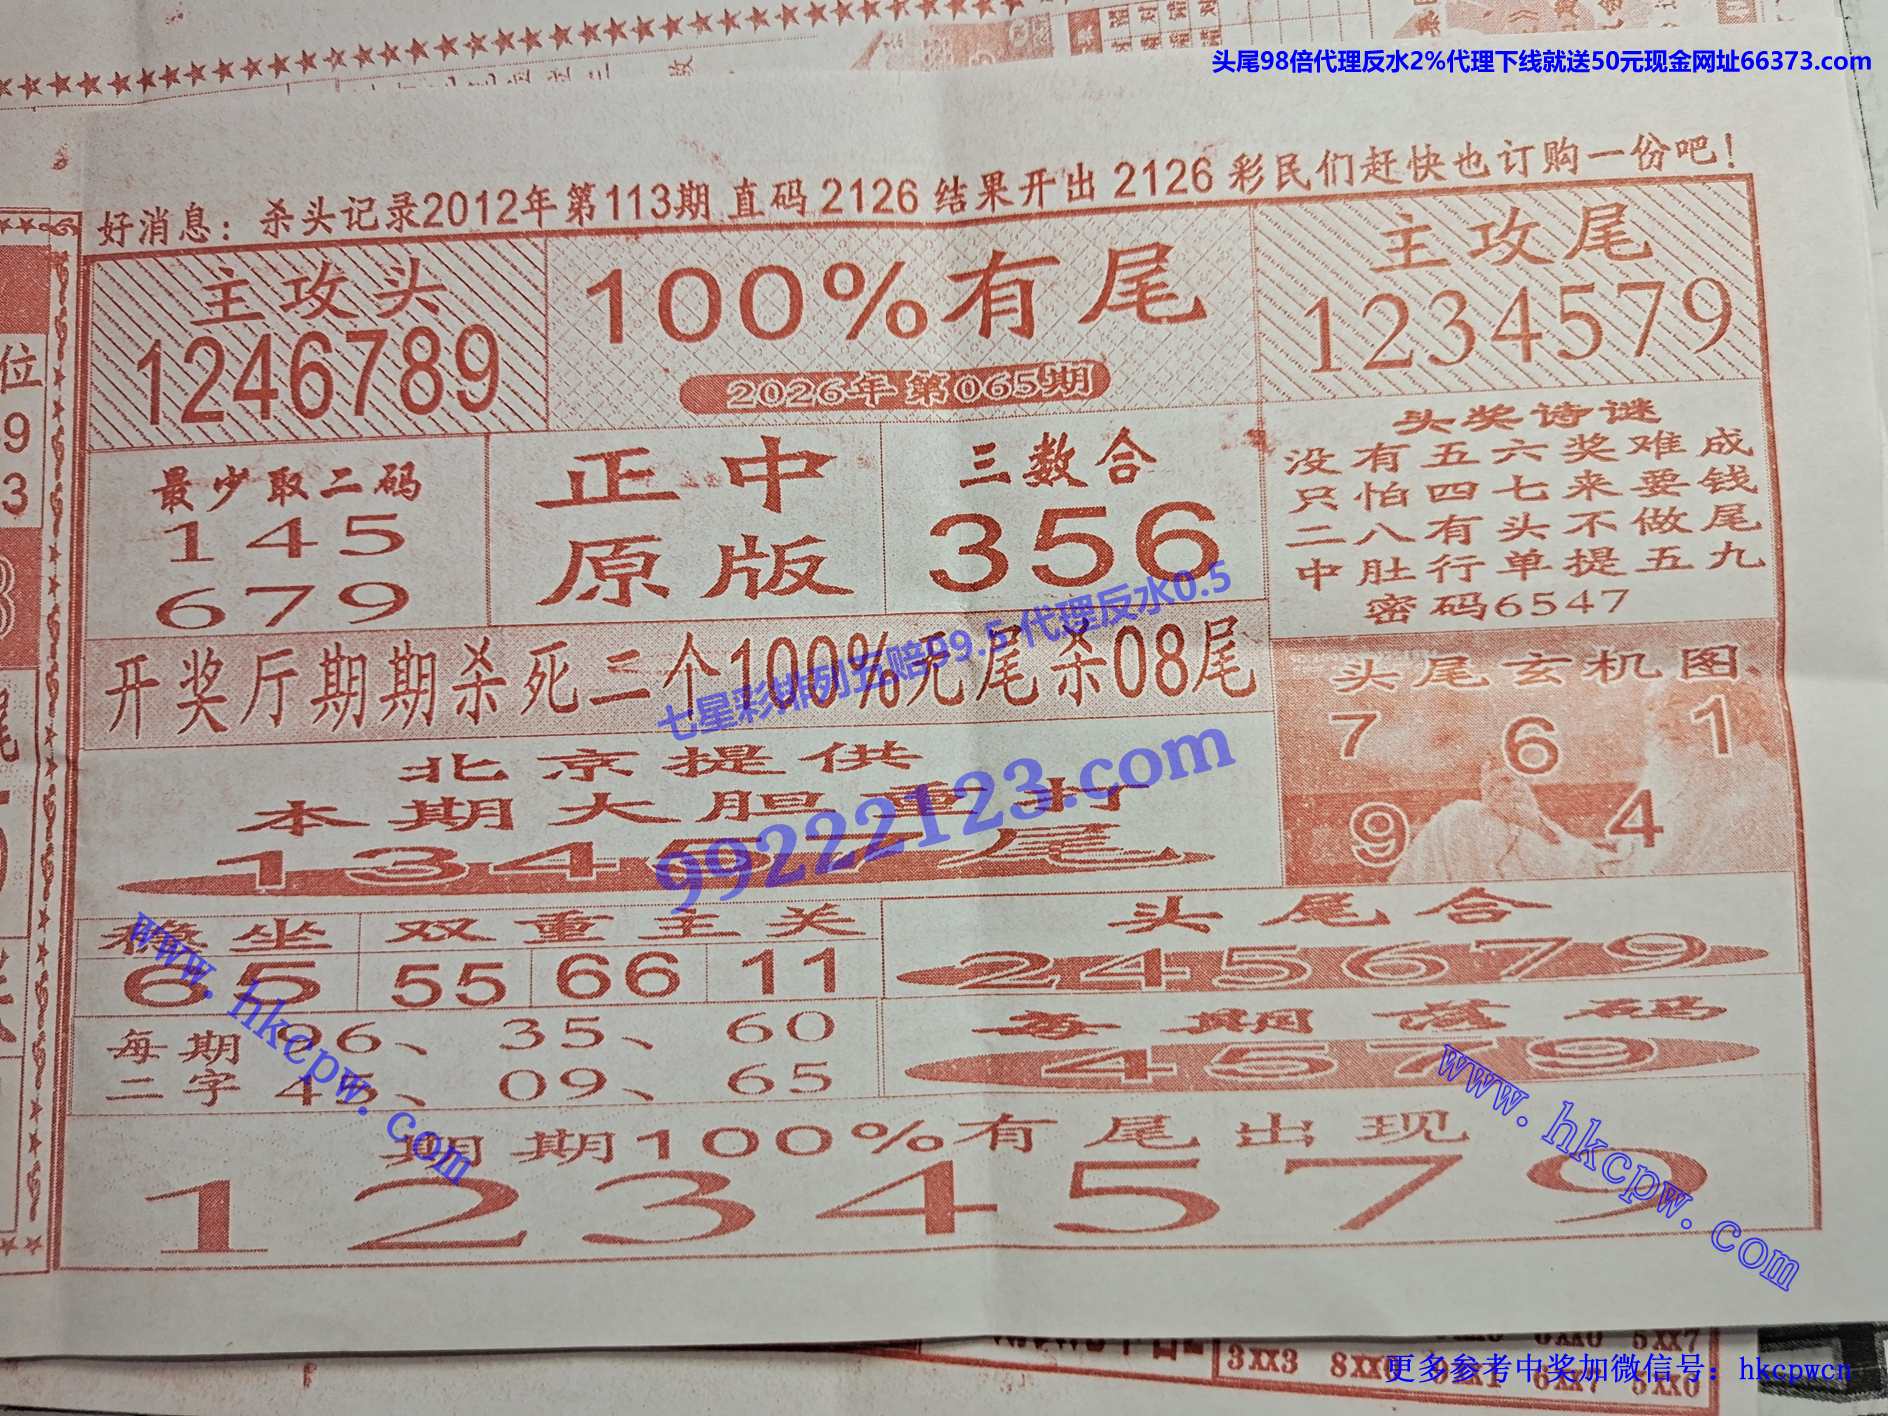 头尾98倍代理反水2%代理下线就送50元现金网址66373.com
好消息：杀头记录2012年第113期 直码 2126 结果开出 2126 彩民们赶快也订购一份吧！
主攻头
1246789
100%有尾
2026年第065期
主攻尾
1234579
最少取二码
145
679
正中
原版
三数合
356
头奖诗谜
没有五六奖难成
只怕四七来要钱
二八有头不做尾
中肚行单提五九
密码6547
开奖厅期期杀死二个100%无尾杀08尾
七星彩排列五赔99.5 代理反水0.5
头尾玄机图
7 6 1
9 4
北京提供
本期大胆重出
134579尾
99222123.com
稳坐
65
双重主关
55 66 11
头尾合
245679
每期 06、 35、 60
二字 45、 09、 65
每期落码
4579
www.hkcpw.com
www.hkcpw.com
期期100%有尾出现
1234579
位
9
3
尾
5xx7
3xx3 8xx0 6xx7 5xx0
更多参考中奖加微信号：hkcpwcn